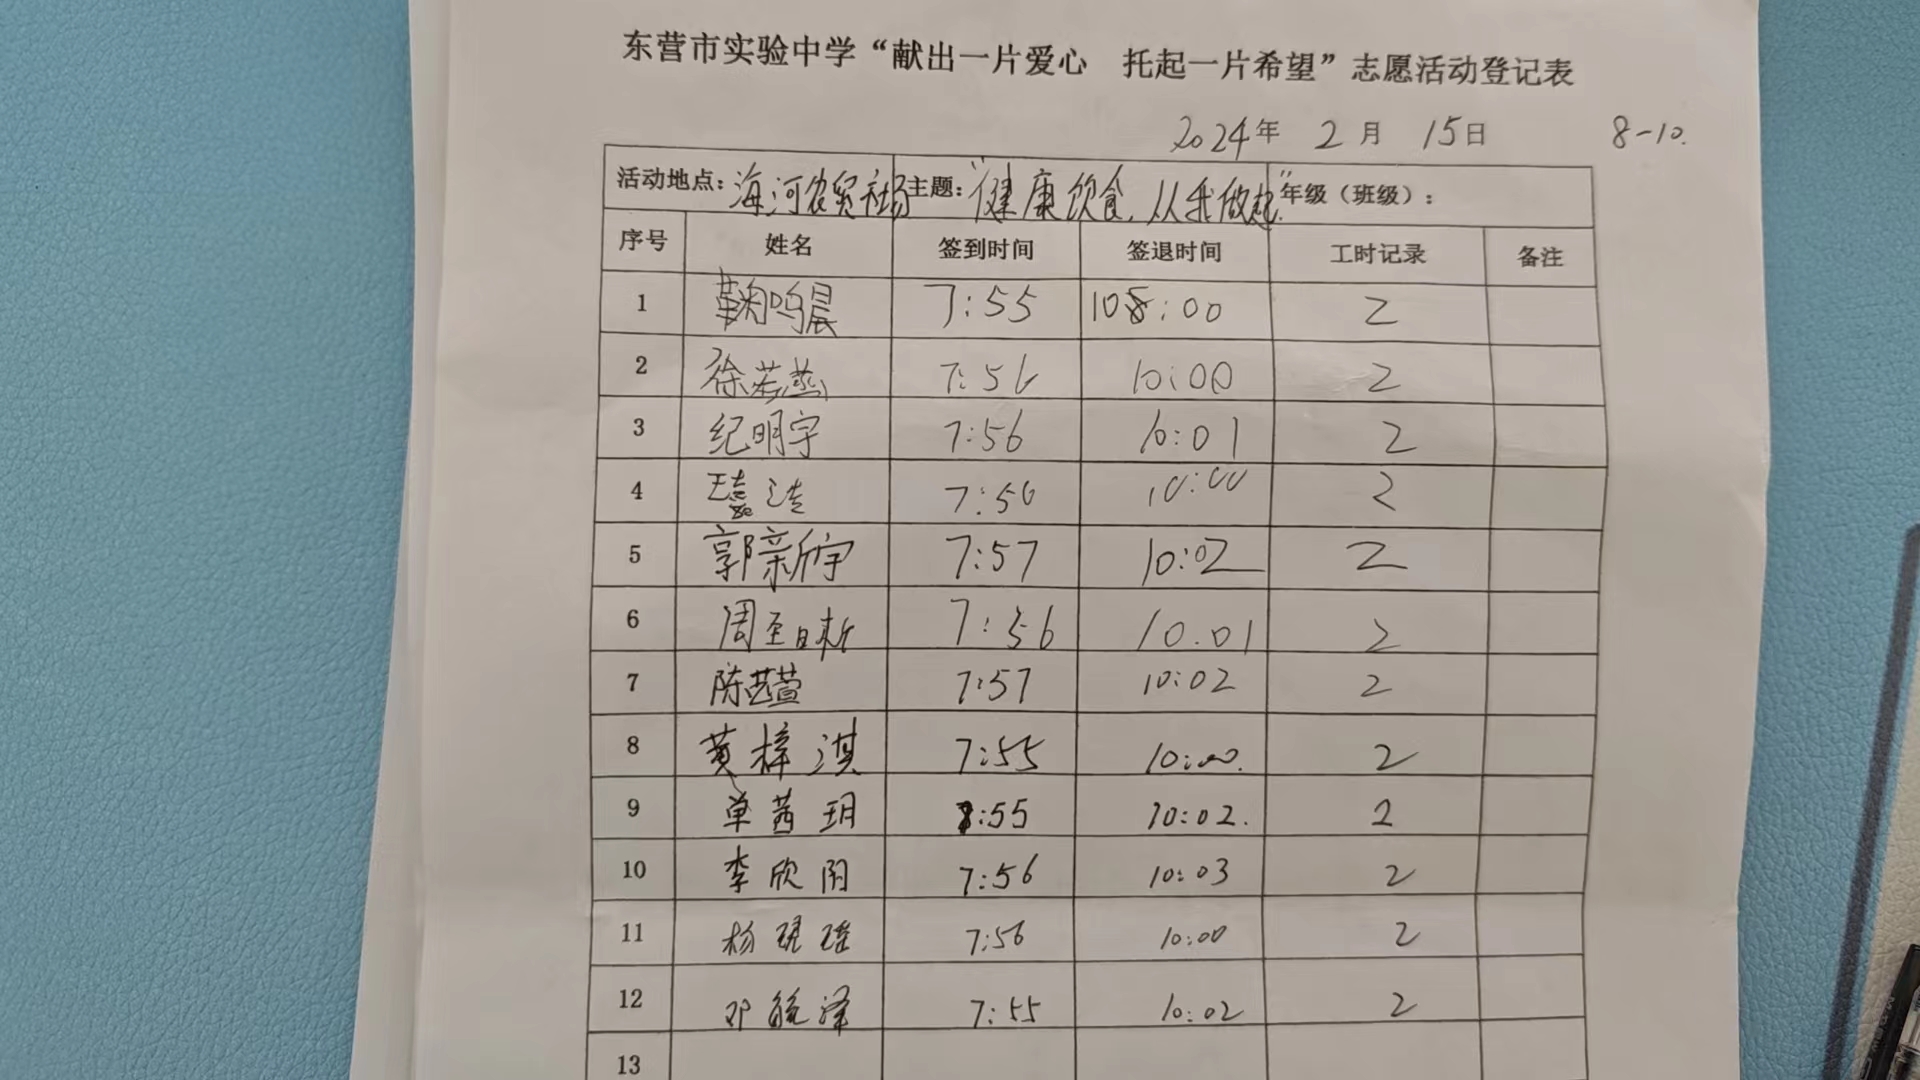 东营市实验中学“献出一片爱心 托起一片希望”志愿活动登记表
2024年 2月 15日 8-10.
活动地点：海河农贸市场 主题：“健康饮食，从我做起.” 年级（班级）：
序号 姓名 签到时间 签退时间 工时记录 备注
1 鞠鸣晨 7:55 10:00 2
2 徐若燕 7:56 10:00 2
3 纪明宇 7:56 10:01 2
4 7:56 10:00 2
5 郭亲欣宇 7:57 10:02 2
6 周至晰 7:56 10.01 2
7 陈茜萱 7:57 10:02 2
8 黄梓淇 7:55 10:00. 2
9 单茜玥 7:55 10:02. 2
10 李欣阳 7:56 10:03 2
11 杨珺瑶 7:56 10:00 2
12 邓毓泽 7:55 10:02 2
13